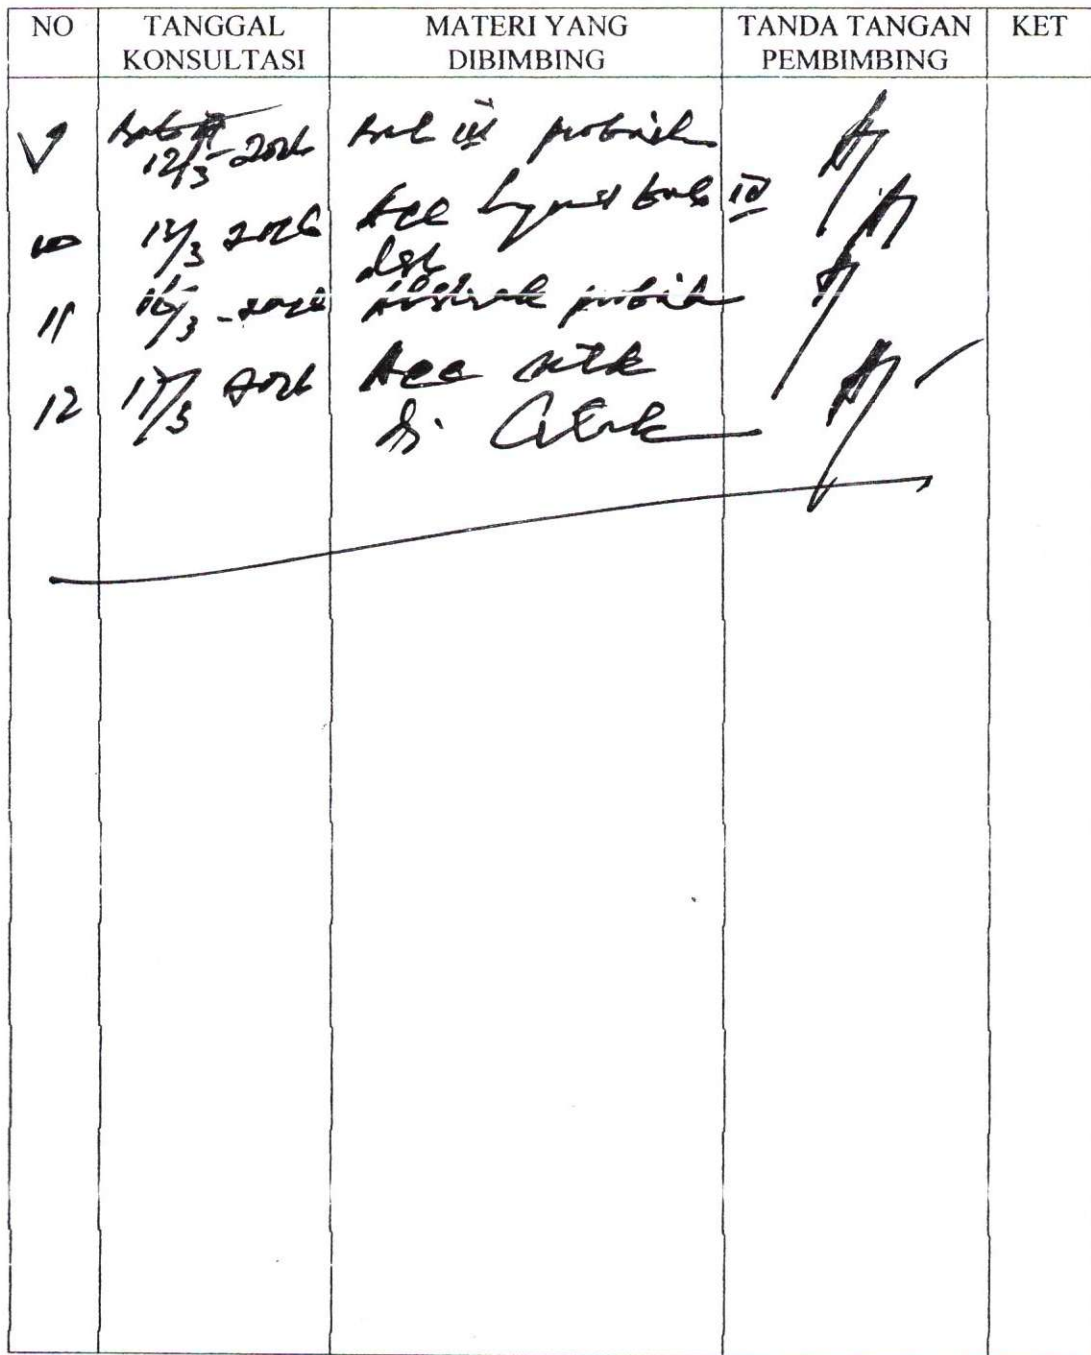 NO TANGGAL KONSULTASI MATERI YANG DIBIMBING TANDA TANGAN PEMBIMBING KET
9 12/3-2026 Bab III perbaiki
10 13/3 2026 Acc lanjut bab IV
dst
11 16/3-2026 Abstrak perbaiki
12 17/3 2026 Acc utk
di Cetak